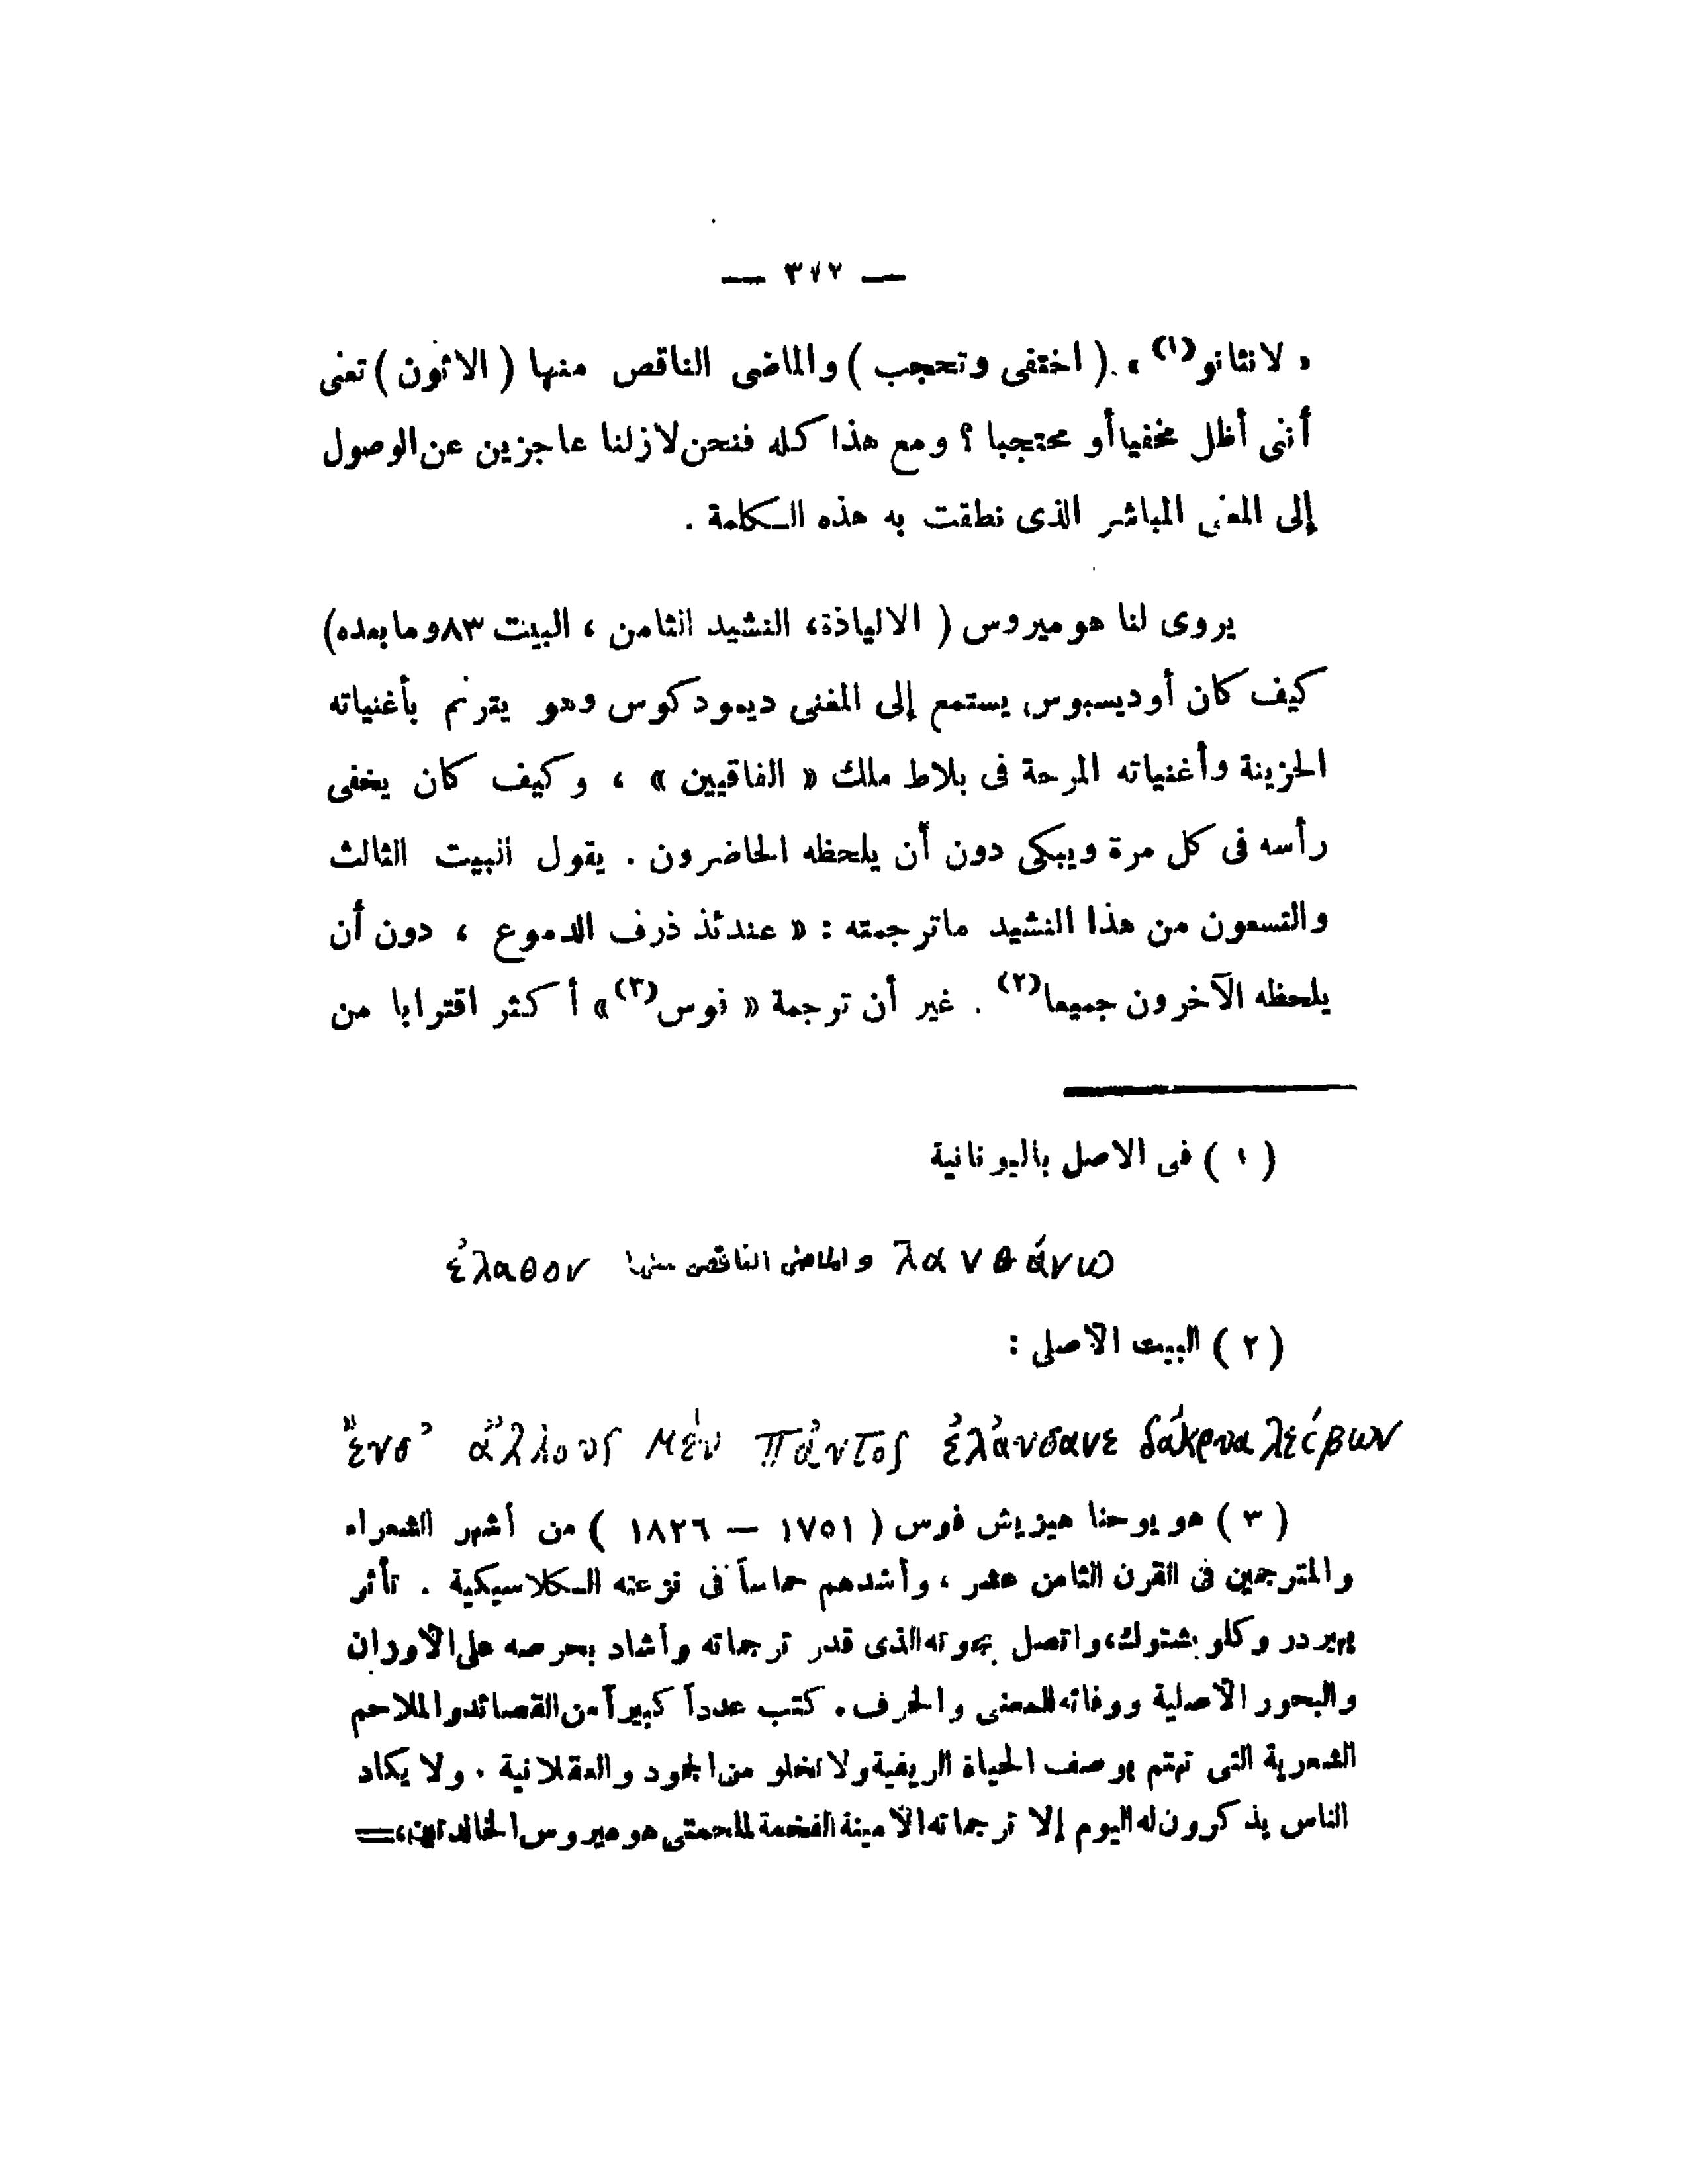 — ٣٧٢ —
« لانثانو(١) » . ( اختفى وتحجب ) والماضى الناقص منها ( الاثون ) تعنى
أننى أظل مخفيا أو محتجبا ؟ ومع هذا كله فنحن لازلنا عاجزين عن الوصول
إلى المعنى المباشر الذى نطقت به هذه الكلمة .
يروى لنا هوميروس ( الالياذة، النشيد الثامن ، البيت ٨٣ وما بعده )
كيف كان أوديسيوس يستمع إلى المغنى ديمودكوس وهو يترنم بأغنياته
الحزينة وأغنياته المرحة فى بلاط ملك « الفاقيين » ، وكيف كان يخفى
رأسه فى كل مرة ويبكى دون أن يلحظه الحاضرون . يقول البيت الثالث
والتسعون من هذا النشيد ماترجمته : « عندئذ ذرف الدموع ، دون أن
يلحظه الآخرون جميعا(٢) . غير أن ترجمة « فوس(٣) » أكثر اقترابا من
( ١ ) فى الاصل باليونانية
λανθάνω والماضى الناقص منها ἐλαθον
( ٢ ) البيت الأصلى :
ἔνσ’ ἄλλους μὲν πάντος ἐλάνσανε δάκρυα λείβων
( ٣ ) هو يوحنا هيزيش فوس ( ١٧٥١ — ١٨٢٦ ) من أشهر الشعراء
والمترجمين فى القرن الثامن عشر ، وأشدهم حماساً فى نزعته الكلاسيكية . تأثر
بهيردر وكلوبشتوك، واتصل بجوته الذى قدر ترجماته وأشاد بحرصه على الأوزان
والبحور الأصلية ووفائه للمعنى والحرف . كتب عدداً كبيراً من القصائد والملاحم
الشعرية التى تهتم بوصف الحياة الريفية ولا تخلو من الجمود والعقلانية . ولا يكاد
الناس يذكرون له اليوم إلا ترجماته الأمينة الفخمة لملحمتى هوميروس الخالدتين، =